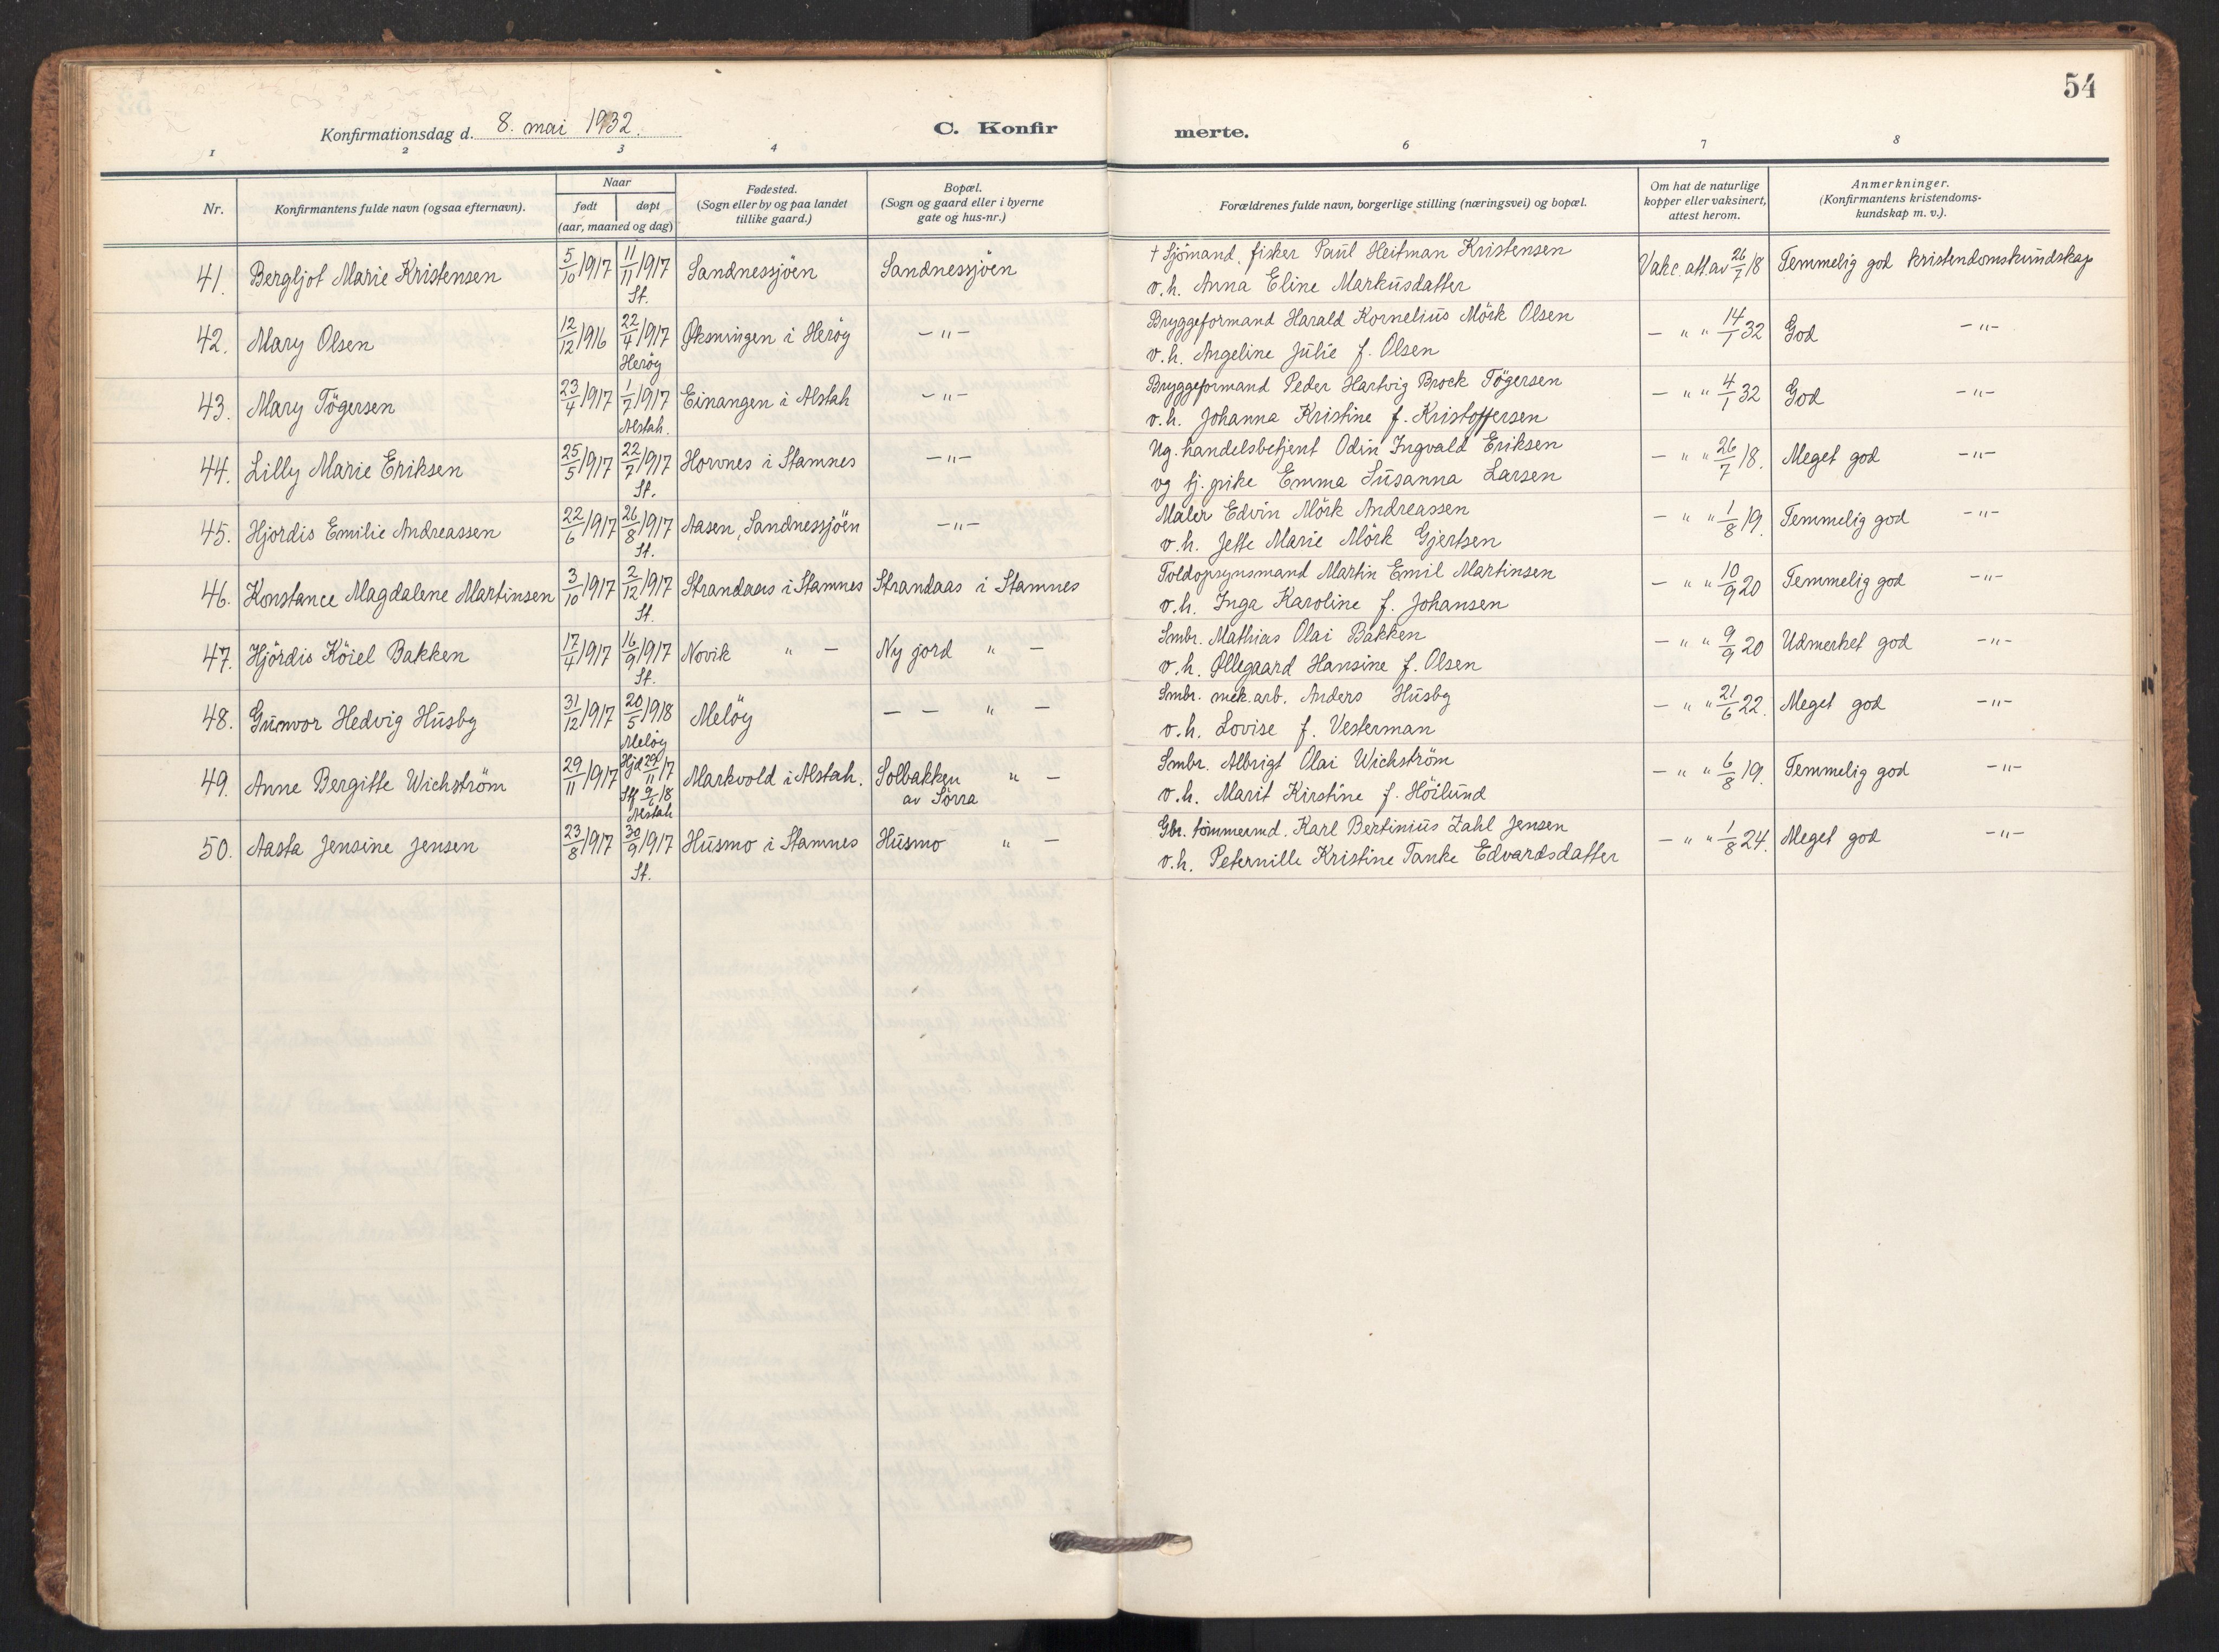 54
Konfirmationsdag d. 8. mai 1932.
C. Konfirmerte.
1 2 3 4 6 7 8
Nr.
Konfirmantens fulde navn (ogsaa efternavn).
Naar
født døpt
(aar, maaned og dag)
Fødested.
(Sogn eller by og paa landet
tillike gaard.)
Bopæl.
(Sogn og gaard eller i byerne
gate og hus-nr.)
Forældrenes fulde navn, borgerlige stilling (næringsvei) og bopæl.
Om hat de naturlige
kopper eller vaksinert,
attest herom.
Anmerkninger.
(Konfirmantens kristendoms-
kundskap m. v.).
41. Bergljot Marie Kristensen 5/10 1917 11/11 1917 St. Sandnessjöen Sandnessjöen
† Sjömand, fisker Paul Heitman Kristensen
v. h. Anna Eline Markusdatter
Vakc. att av 26/7 18 Temmelig god kristendomskundskap
42. Mary Olsen 12/12 1916 22/4 1917 Heröy Øksningen i Heröy -"-
Bryggeformand Harald Kornelius Mörk Olsen
v. h. Angeline Julie f. Olsen
- " " 14/1 32 God -"-
43. Mary Tögersen 23/4 1917 1/7 1917 Alstah. Einangen i Alstah -"-
Bryggeformand Peder Hartvig Brock Tögersen
v. h. Johanna Kristine f. Kristoffersen
- " " 4/1 32 God -"-
44. Lilly Marie Eriksen 25/5 1917 22/7 1917 St. Horvnes i Stamnes -"-
Ug. handelsbetjent Odin Ingvald Eriksen
og tj. pike Emma Susanna Larsen
- " " 26/7 18. Meget god -"-
45. Hjordis Emilie Andreassen 22/6 1917 26/8 1917 St. Aasen, Sandnessjöen -"-
Maler Edvin Mörk Andreassen
v. h. Jette Marie Mörk Gjertsen
- " " 1/8 19. Temmelig god -"-
46. Konstance Magdalene Martinsen 3/10 1917 2/12 1917 St. Strandaas i Stamnes Strandaas i Stamnes
Toldopsynsmand Martin Emil Martinsen
v. h. Inga Karoline f. Johansen
- " " 10/9 20 Temmelig god -"-
47. Hjördis Köiel Bakken 17/4 1917 16/9 1917 St. Novik " - Ny jord " -
Smbr. Mathias Olai Bakken
v. h. Øllegaard Hansine f. Olsen
- " " 9/9 20 Udmerket god -"-
48. Gunvor Hedvig Husby 31/12 1917 20/5 1918 Melöy Melöy - - " -
Smbr. mek. arb. Anders Husby
v. h. Lovise f. Vesterman
- " " 21/6 22. Meget god -"-
49. Anne Bergitte Wichström 29/11 1917 Hjd 29/11 17 Stf 9/6 18 Alstah Markvold i Alstah. Solbakken av Sörra " -
Smbr. Albrigt Olai Wichström
v. h. Marit Kirstine f. Höilund
- " " 6/8 19. Temmelig god -"-
50. Aasta Jensine Jensen 23/8 1917 30/9 1917 St. Husmo i Stamnes Husmo " -
Gbr. tömmermd. Karl Bertinius Zahl Jensen
v. h. Peternille Kristine Tanke Edvardsdatter
- " " 1/8 24. Meget god -"-